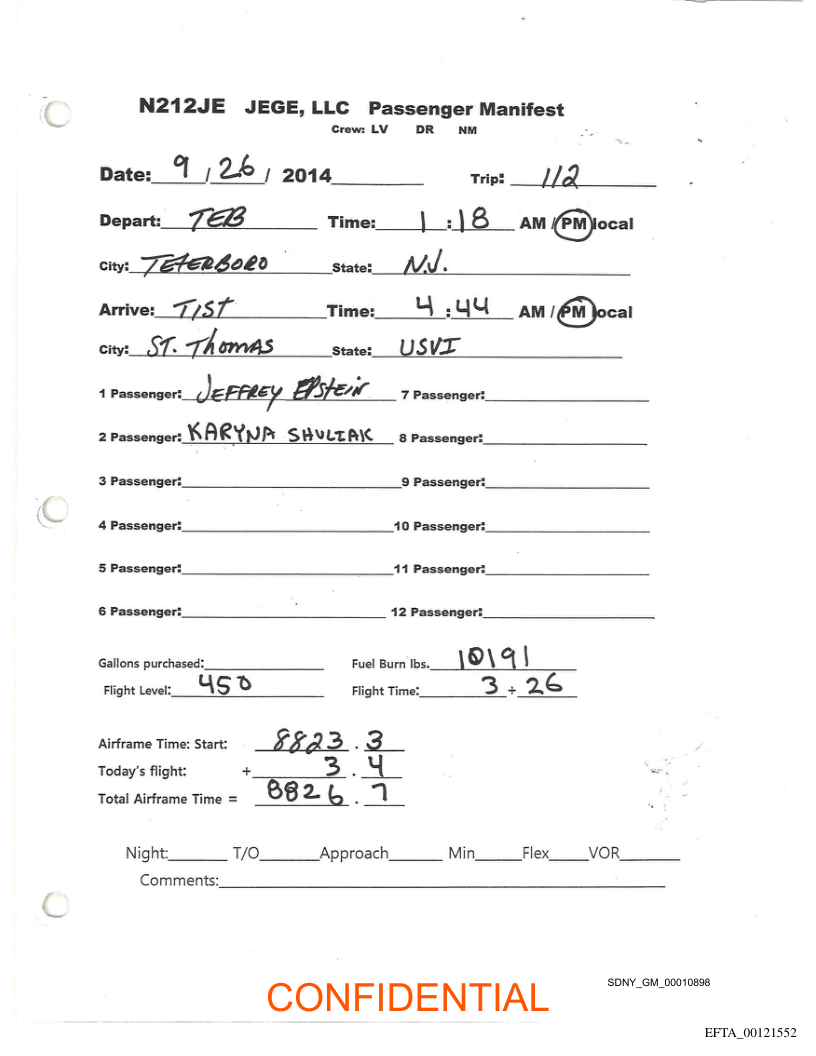 N212JE JEGE, LLC Passenger Manifest
Crew: LV DR NM
Date: 9 / 26 / 2014 Trip: 112
Depart: TEB Time: 1 : 18 AM / PM local
City: TETERBORO State: N.J.
Arrive: TIST Time: 4 : 44 AM / PM local
City: ST. THOMAS State: USVI
1 Passenger: JEFFREY EPSTEIN 7 Passenger:
2 Passenger: KARYNA SHULIAK 8 Passenger:
3 Passenger: 9 Passenger:
4 Passenger: 10 Passenger:
5 Passenger: 11 Passenger:
6 Passenger: 12 Passenger:
Gallons purchased: Fuel Burn lbs. 10191
Flight Level: 450 Flight Time: 3 + 26
Airframe Time: Start: 8823 . 3
Today's flight: + 3 . 4
Total Airframe Time = 8826 . 7
Night: T/O Approach Min Flex VOR
Comments:
SDNY_GM_00010898
CONFIDENTIAL
EFTA_00121552